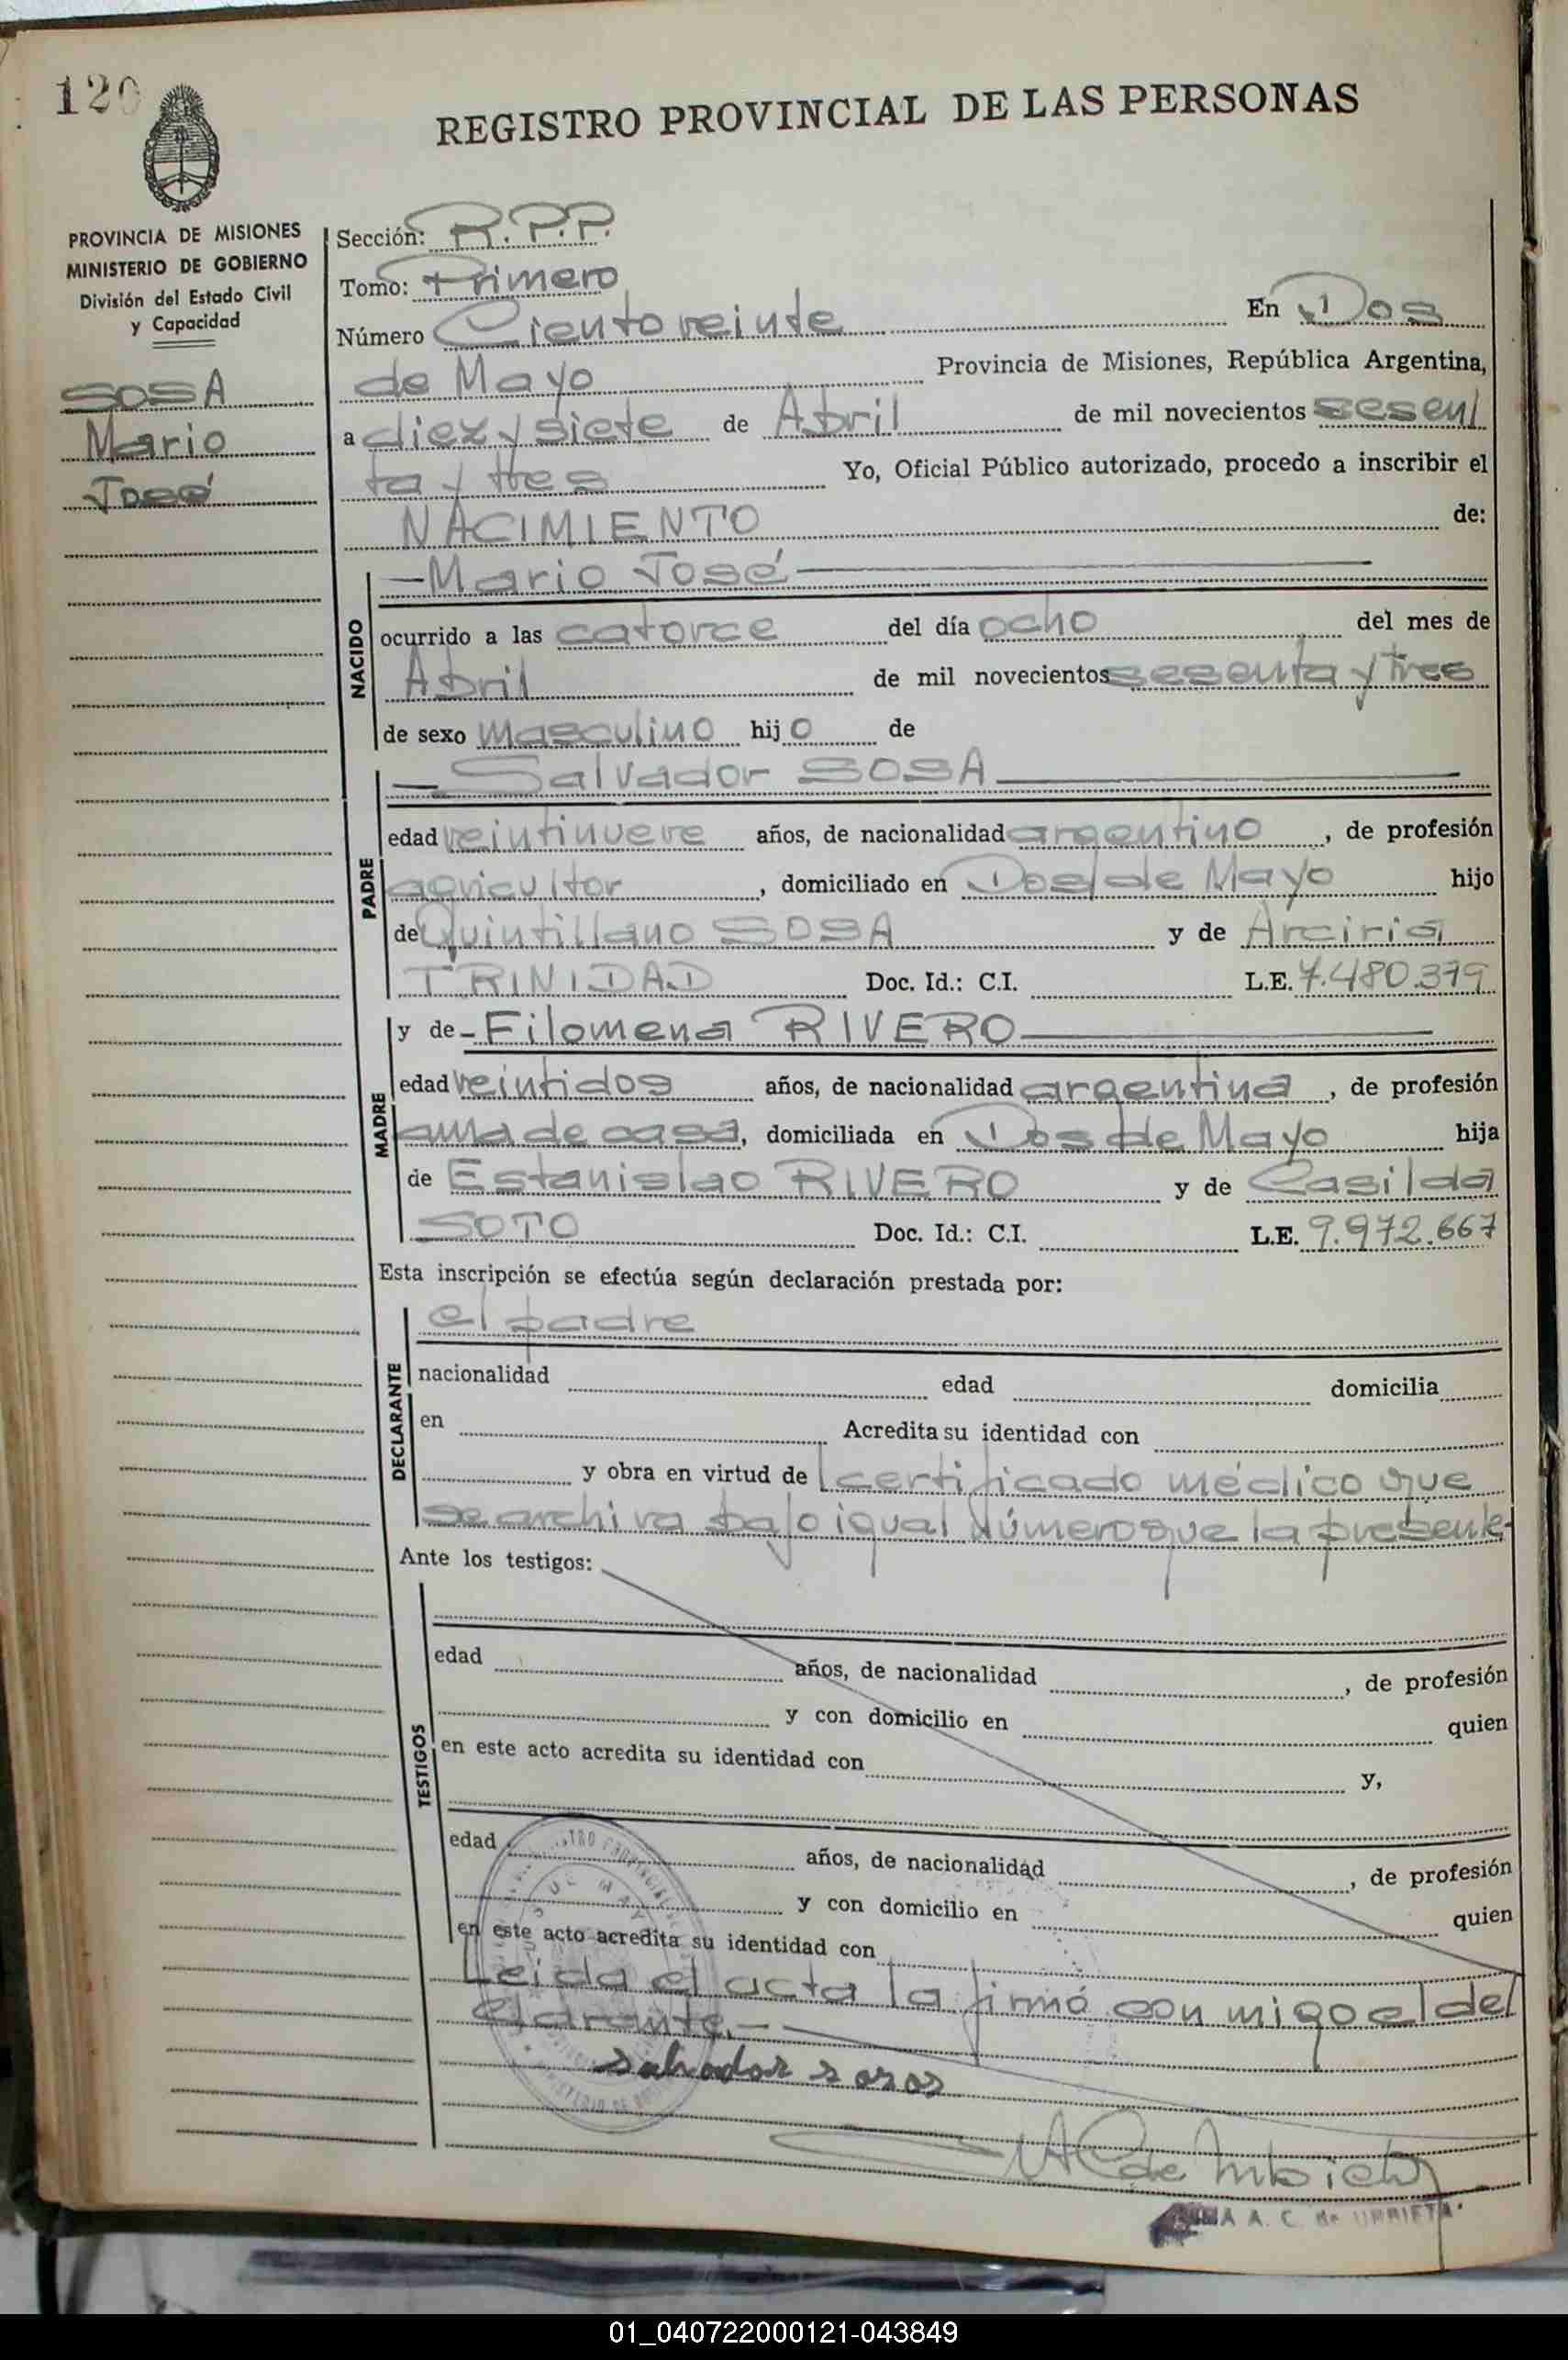 120
REGISTRO PROVINCIAL DE LAS PERSONAS
PROVINCIA DE MISIONES
MINISTERIO DE GOBIERNO
División del Estado Civil
y Capacidad
SOSA
Mario
José
Sección: R.P.P.
Tomo: Primero
Número Ciento veinte En Dos
de Mayo Provincia de Misiones, República Argentina,
a diez y siete de Abril de mil novecientos sesen
ta y tres Yo, Oficial Público autorizado, procedo a inscribir el
NACIMIENTO de:
NACIDO
—Mario José—
ocurrido a las catorce del día ocho del mes de
Abril de mil novecientos sesenta y tres
de sexo masculino hijo de
PADRE
—Salvador SOSA—
edad veintinueve años, de nacionalidad argentino, de profesión
agricultor, domiciliado en Dos de Mayo hijo
de Quintillano SOSA y de Arciria
TRINIDAD Doc. Id.: C.I. L.E. 7.480.379
MADRE
y de - Filomena RIVERO—
edad veintidos años, de nacionalidad argentina, de profesión
ama de casa, domiciliada en Dos de Mayo hija
de Estanislao RIVERO y de Casilda
SOTO Doc. Id.: C.I. L.E. 9.972.667
Esta inscripción se efectúa según declaración prestada por:
DECLARANTE
el padre
nacionalidad edad domicilia
en Acredita su identidad con
y obra en virtud de l certificado médico que
se archiva bajo igual Número que la presente-
Ante los testigos:
TESTIGOS
edad años, de nacionalidad , de profesión
y con domicilio en quien
en este acto acredita su identidad con y,
edad años, de nacionalidad , de profesión
y con domicilio en quien
en este acto acredita su identidad con
Leida el acta la firmó con migo el de
clarante.—
salvador sosa
A. C. de URRIETA
01_040722000121-043849